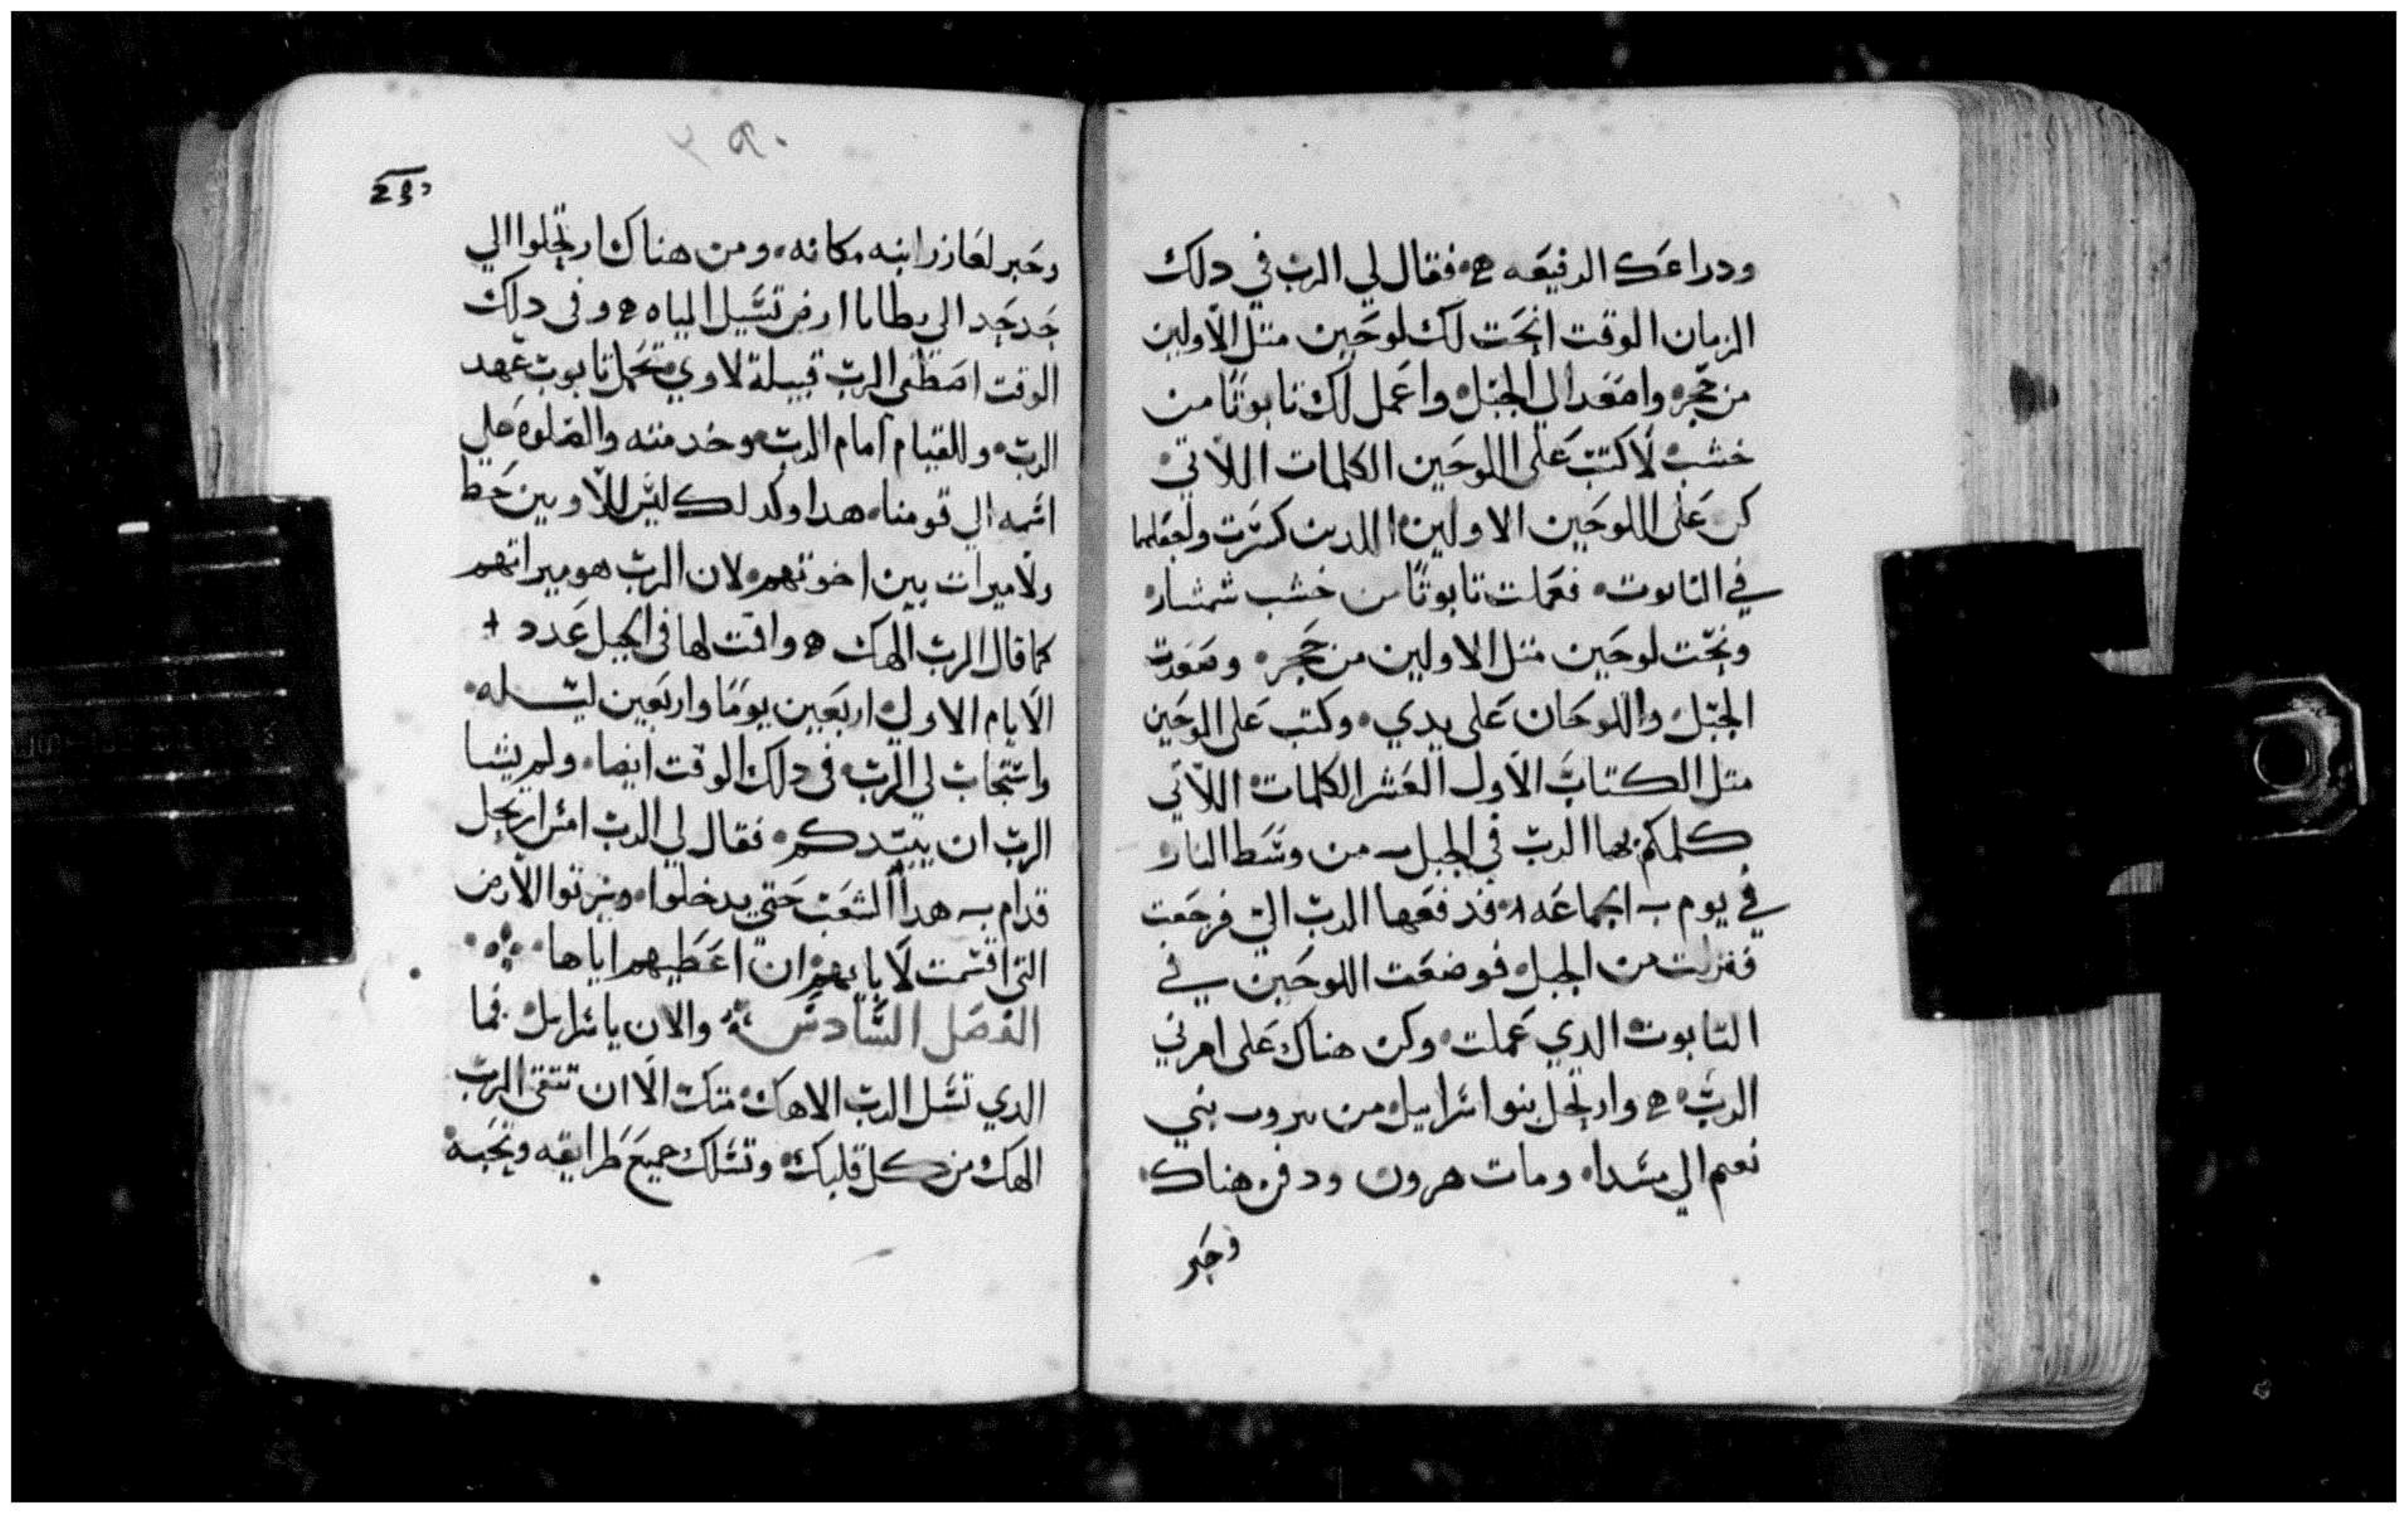 ودراعك الرفيعه ۞ فقال لي الرب في دلك
الزمان الوقت انحت لك لوحين متل الاولين
من حجر واصعد الي الجبل واعمل لك تابوتا من
خشب لاكتب على اللوحين الكلمات اللاتي
كن على اللوحين الاولين اللدين كسرت ولجعلهما
في التابوت فعملت تابوتا من خشب شمشار
ونحت لوحين متل الاولين من حجر وصعدت
الجبل واللوحان على يدي وكتب على اللوحين
متل الكتاب الاول العشر الكلمات اللاتي
كلمكم بها الرب في الجبل من وسط النار
في يوم الجماعه فدفعها الرب الي فرجعت
فنزلت من الجبل فوضعت اللوحين في
التابوت الدي عملت وكن هناك على امرني
الرب ۞ وارتحل بنوا اسراييل من بيروت بني
نعيم الي مسدا ومات هرون ودفن هناك
وحبر
٢٩٠
290
وحبر لعازر ابنه مكانه ومن هناك ارتحلوا الي
جدجد الي يطابا ارض تسيل المياه ۞ وفي دلك
الوقت اصطفى الرب قبيلة لاوي تحمل تابوت عهد
الرب وللقيام امام الرب وخدمته والصلوه علي
اسمه الي قومنا هدا وكدلك ليس للاويين حظ
ولا ميرات بين اخوتهم لان الرب هو ميراتهم
كما قال الرب الهك ۞ واقمت لها في الجبل عدد +
الايام الاول اربعين يوما واربعين ليله
واستجاب لي الرب في دلك الوقت ايضا ولم يشا
الرب ان يبيدكم فقال لي الرب امش ارتحل
قدام هدا الشعب حتي يدخلوا ويرتوا الارض
التي اقسمت لابايهم ان اعطيهم اياها
الفصل السادس والان ياسراييل فما
الدي تسل الرب الاهك منك الا ان تتقي الرب
الهك من كل قلبك وتسلك جميع طرايقه وتحبه